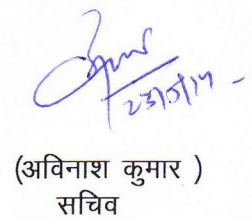 23/5/17
(अविनाश कुमार )
सचिव